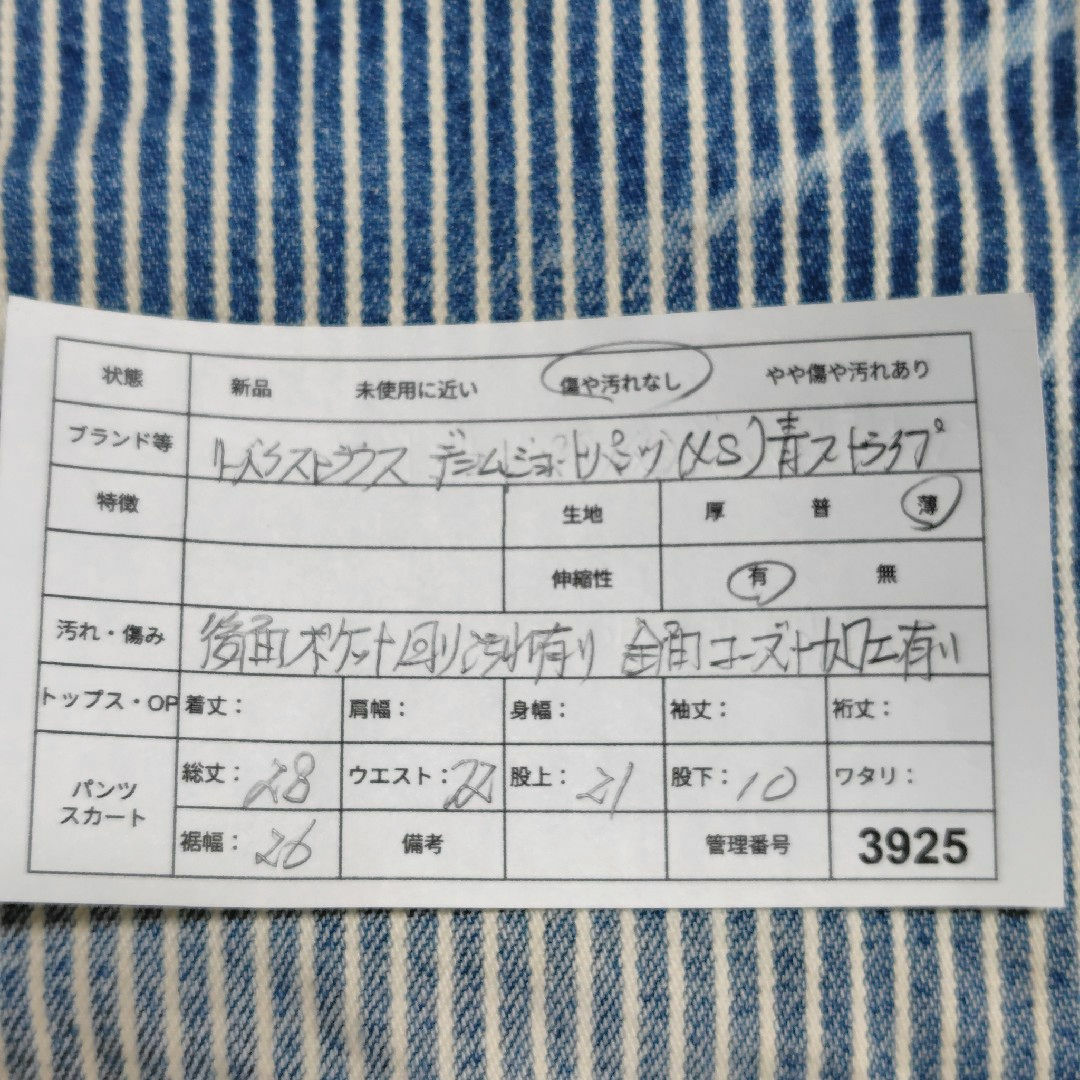 状態 新品 未使用に近い 傷や汚れなし やや傷や汚れあり
ブランド等 デニムショートパンツ(XS)青ストライプ
特徴 生地 厚 普 薄
伸縮性 有 無
汚れ・傷み 後面ポケット回り汚れ有り 全面ユーズド加工有り
トップス・OP 着丈: 肩幅: 身幅: 袖丈: 裄丈:
パンツ スカート 総丈:28 ウエスト: 股上:21 股下:10 ワタリ:
裾幅:26 備考 管理番号 3925